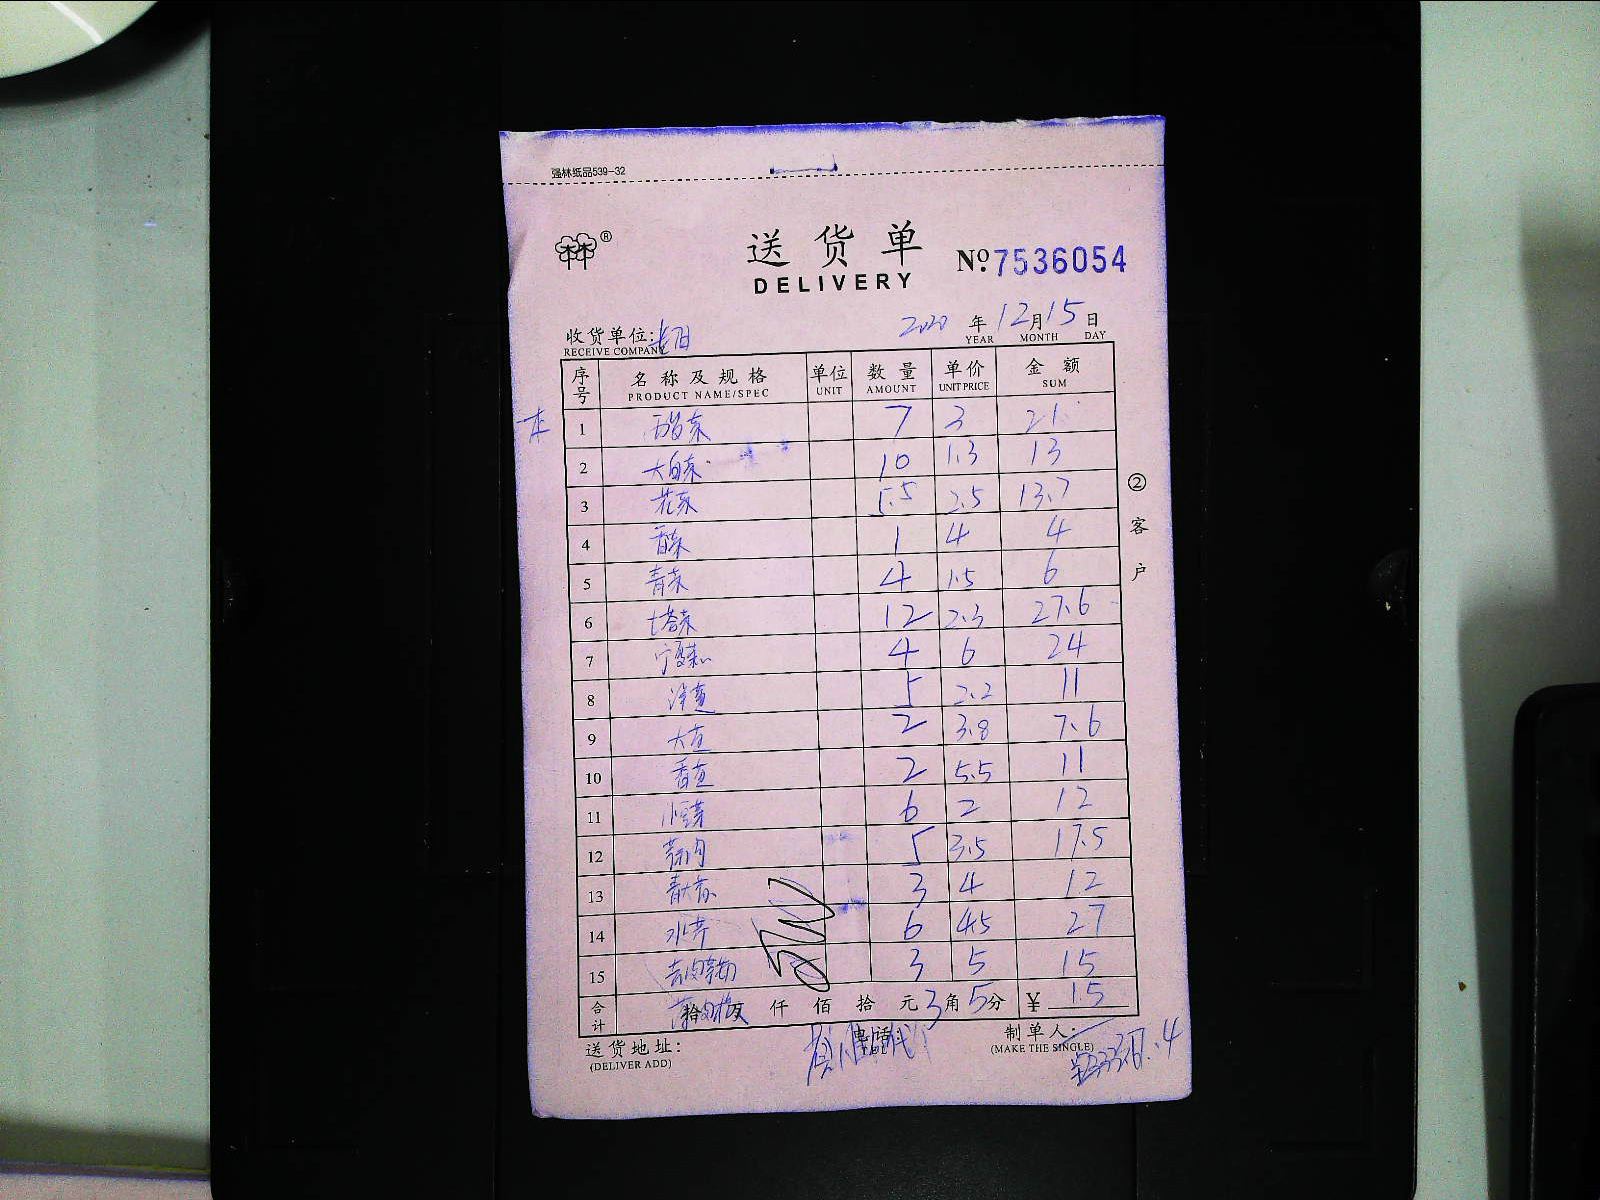 强林纸品539-32
送货单
DELIVERY
№ 7536054
收货单位:
RECEIVE COMPANY
2020 年 12 月 15 日
YEAR MONTH DAY
序号 名称及规格 单位 数量 单价 金额
PRODUCT NAME/SPEC UNIT AMOUNT UNIT PRICE SUM
1 7 3 21
2 大白菜 10 1.3 13
3 花菜 5.5 2.5 13.7
4 香菜 1 4 4
5 青菜 4 1.5 6
6 12 2.3 27.6
7 4 6 24
8 5 2.2 11
9 2 3.8 7.6
10 2 5.5 11
11 6 2 12
12 5 3.5 17.5
13 3 4 12
14 水芹 6 4.5 27
15 3 5 15
合计 拾 仟 佰 拾 元 3 角 5 分 ¥ 15
②客户
送货地址:
(DELIVER ADD)
电话:
制单人:
(MAKE THE SINGLE)